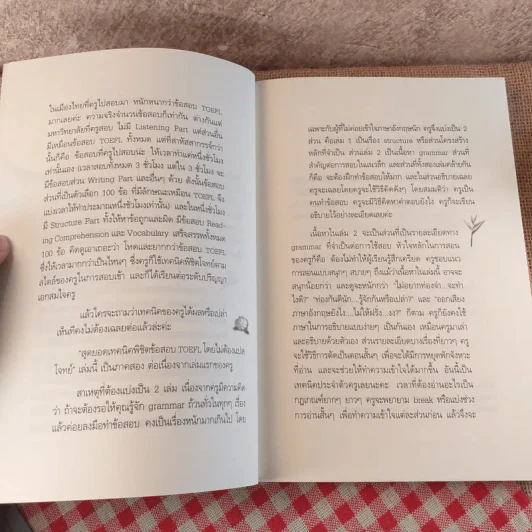 ในเมืองไทยที่ครูไปสอบมา หนักหนากว่าข้อสอบ TOEFL
มากเลยค่ะ ความจริงจำนวนข้อสอบก็เท่ากัน ต่างกันแต่
มหาวิทยาลัยที่ครูสอบ ไม่มี Listening Part แต่ส่วนอื่น
มีเหมือนข้อสอบ TOEFL ทั้งหมด แต่ที่สาหัสสากรรจ์กว่า
นั้นก็คือ ข้อสอบที่ครูไปสอบน่ะ ให้เวลาทำแค่หนึ่งชั่วโมง
เท่านั้นเอง (เวลาสอบทั้งหมด 3 ชั่วโมง แต่ใน 3 ชั่วโมงจะ
มีข้อสอบส่วน Writing Part และอื่นๆ ด้วย ดังนั้นข้อสอบ
ส่วนที่เป็นตัวเลือก 100 ข้อ ที่มีลักษณะเหมือน TOEFL จึง
แบ่งเวลาให้ทำประมาณหนึ่งชั่วโมงเท่านั้น) และในหนึ่งชั่วโมง
มี Structure Part ทั้งให้หาข้อถูกและผิด มีข้อสอบ Read-
ing Comprehension และ Vocabulary เสร็จสรรพทั้งหมด
100 ข้อ คิดดูเอาเถอะว่า โหดและยากกว่าข้อสอบ TOEFL
ซึ่งให้เวลามากกว่าเป็นไหนๆ ซึ่งครูก็ใช้เทคนิคพิชิตโจทย์ตาม
สไตล์ของครูในการสอบเข้า และก็ได้เรียนต่อระดับปริญญา
เอกสมใจครู
แล้วใครจะถามว่าเทคนิคของครูได้ผลหรือเปล่า
เห็นทีคงไม่ต้องเฉลยต่อแล้วล่ะค่ะ
"สุดยอดเทคนิคพิชิตข้อสอบ TOEFL โดยไม่ต้องแปล
โจทย์" เล่มนี้ เป็นภาคสอง ต่อเนื่องจากเล่มแรกของครู
สาเหตุที่ต้องแบ่งเป็น 2 เล่ม เนื่องจากครูมีความคิด
ว่า ถ้าจะต้องรอให้คุณรู้จัก grammar ถ้วนทั่วในทุกๆ เรื่อง
แล้วค่อยลงมือทำข้อสอบ คงเป็นเรื่องหนักมากเกินไป โดย
เฉพาะกับผู้ที่ไม่ค่อยเข้าใจภาษาอังกฤษนัก ครูจึงแบ่งเป็น 2
ส่วน คือเล่ม 1 เป็นเรื่อง structure หรือส่วนโครงสร้าง
หลักที่จำเป็น ส่วนเล่ม 2 เป็นเนื้อหา grammar ส่วนที่
สำคัญต่อการสอบในแนวลึก และส่วนที่ทั้งสองเล่มคล้ายกัน
ก็คือ จะต้องฝึกทำข้อสอบให้มาก และในส่วนอธิบายเฉลย
ครูจะเฉลยโดยครูจะใช้วิธีคิดดังๆ โดยสมมติว่า ครูเป็น
คนทำข้อสอบ ครูจะมีวิธีคิดหาคำตอบยังไง ครูก็จะเขียน
อธิบายไว้อย่างละเอียดเลยค่ะ
เนื้อหาในเล่ม 2 จะเป็นส่วนที่เป็นรายละเอียดทาง
grammar ที่จำเป็นต่อการใช้สอบ หัวใจหลักในการสอน
ของครูก็คือ ต้องไม่ทำให้ผู้เรียนรู้สึกเครียด ครูชอบแนว
การสอนแบบสนุกๆ สบายๆ ถึงแม้ว่าเนื้อหาในเล่มนี้ อาจจะ
สนุกน้อยกว่า และดูจะหนักกว่า "ไม่อยากท่องจำ...จะทำ
ไงดี?" "ท่องกันดีนัก...รู้จักกันหรือเปล่า?" และ "ออกเสียง
ภาษาอังกฤษยังไง...ไม่ให้ฝรั่ง...งง?" ก็ตาม ครูก็ยังคงใช้
ภาษาในการอธิบายแบบง่ายๆ เป็นกันเอง เหมือนครูมาเล่า
และอธิบายด้วยตัวเอง ส่วนรายละเอียดบางเรื่องที่ยาวๆ ครู
จะใช้วิธีการตัดเป็นตอนสั้นๆ เพื่อจะได้มีการหยุดพักจังหวะ
ที่อ่าน และจะช่วยให้ทำความเข้าใจได้มากขึ้น อันนี้เป็น
เทคนิคประจำตัวครูเลยนะคะ เวลาที่ต้องอ่านอะไรเป็น
กฎเกณฑ์ยากๆ ยาวๆ ครูจะพยายาม break หรือแบ่งช่วง
การอ่านสั้นๆ เพื่อทำความเข้าใจแต่ละส่วนก่อน แล้วจึงจะ